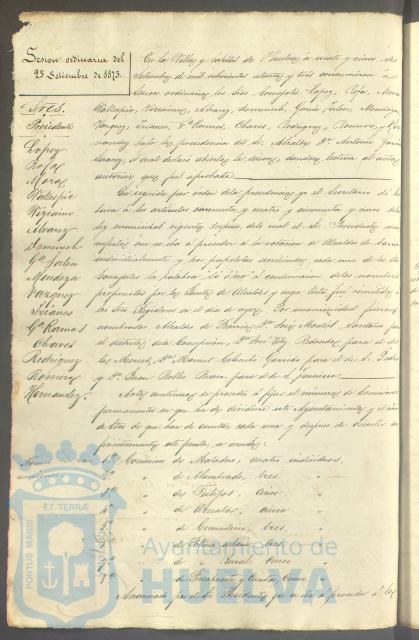 Sesion ordinaria del
25 Setiembre de 1873.
Sres.
Presidente
Lopez
Rojas
Mora
Vallespin
Vizcaino
Alvarez
Domenech
Ga Jalon
Mendoza
Vazquez
Trianes
Ga Ramos
Chaves
Rodriguez
Romero
Hernandez
En la Villa y capital de Huelva á veinte y cinco de
Setiembre de mil ochocientos setenta y tres concurrieron á
sesion ordinaria los Sres Concejales Lopez, Rojas, Mora
Vallespin, Vizcaino, Alvarez, Domenech, Garcia Jalon, Mendoza,
Vazquez, Trianes, Ga Ramos, Chaves, Rodriguez, Romero, y Her
nandez bajo la presidencia del Sr. Alcalde Dn. Antonio Garcia
el cual declaró abierta la sesion, dandose lectura al acta
anterior que fué aprobada.
En seguida por orden de la presidencia yo el Secretario di lec
tura á los articulos cincuenta y cuatro y cincuenta y cinco de la
ley municipal vigente, despues de lo cual el Sr. Presidente
que se iba á proceder á la votacion de Alcaldes de barrio
individualmente y por papeletas
Concejales la palabra si ó no á continuacion de los nombres
propuestos por los
los Sres Regidores en el dia de ayer. Por unanimidad fueron
nombrados Alcaldes de Barrio, Dn. José Montiel Santana para
el distrito de la Concepcion, Dn. José Redondo para el de
la Merced, Dn. Manuel Garrido para el de S. Pedro
y Dn. Juan Robles para el de S. Francisco
Acto continuo se procedió á fijar el número de Comisiones
permanentes en que ha de dividirse este Ayuntamiento y el núme
ro de Sres de que han de constar cada una y despues de
á saber:
1ª Comision de Matadero, cuatro individuos.
" de Alumbrado, tres.
3ª " de Festejos, cinco
4ª " de Abastos, cinco
5ª " de Cementerio, tres.
" de Policia urbana tres.
" Rural cinco
" de Presupuestos y Cuentas, Cinco
Anunciado por el Sr. Presidente que se iba á proceder á la
PORTUS MARIS
ET TERRÆ
Ayuntamiento de
HUELVA